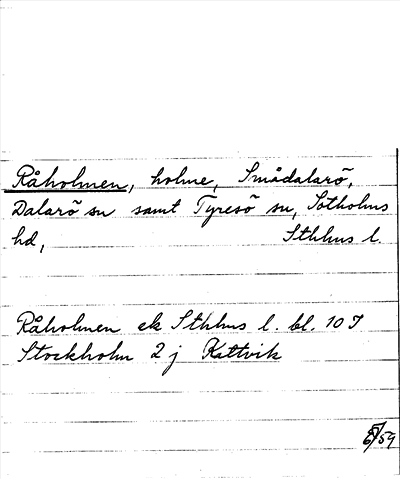 Råholmen, holme, Smådalarö,
Dalarö sn samt Tyresö sn, Sotholms
hd, Sthlms l.
Råholmen ek Sthlms l. bl. 10 I
Stockholm 2 j Kattvik
/59